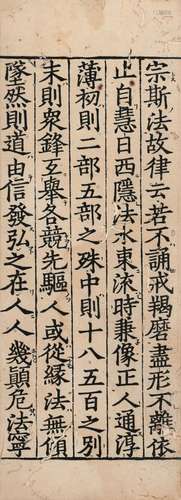 宗斯法故律云若不誦戒羯磨盡形不離依
止自慧日西隱法水東流時兼像正人通淳
薄初則二部五部之殊中則十八五百之別
末則衆鋒互舉各競先驅人或從緣法無傾
墜然則道由信發弘之在人人幾顛危法寧